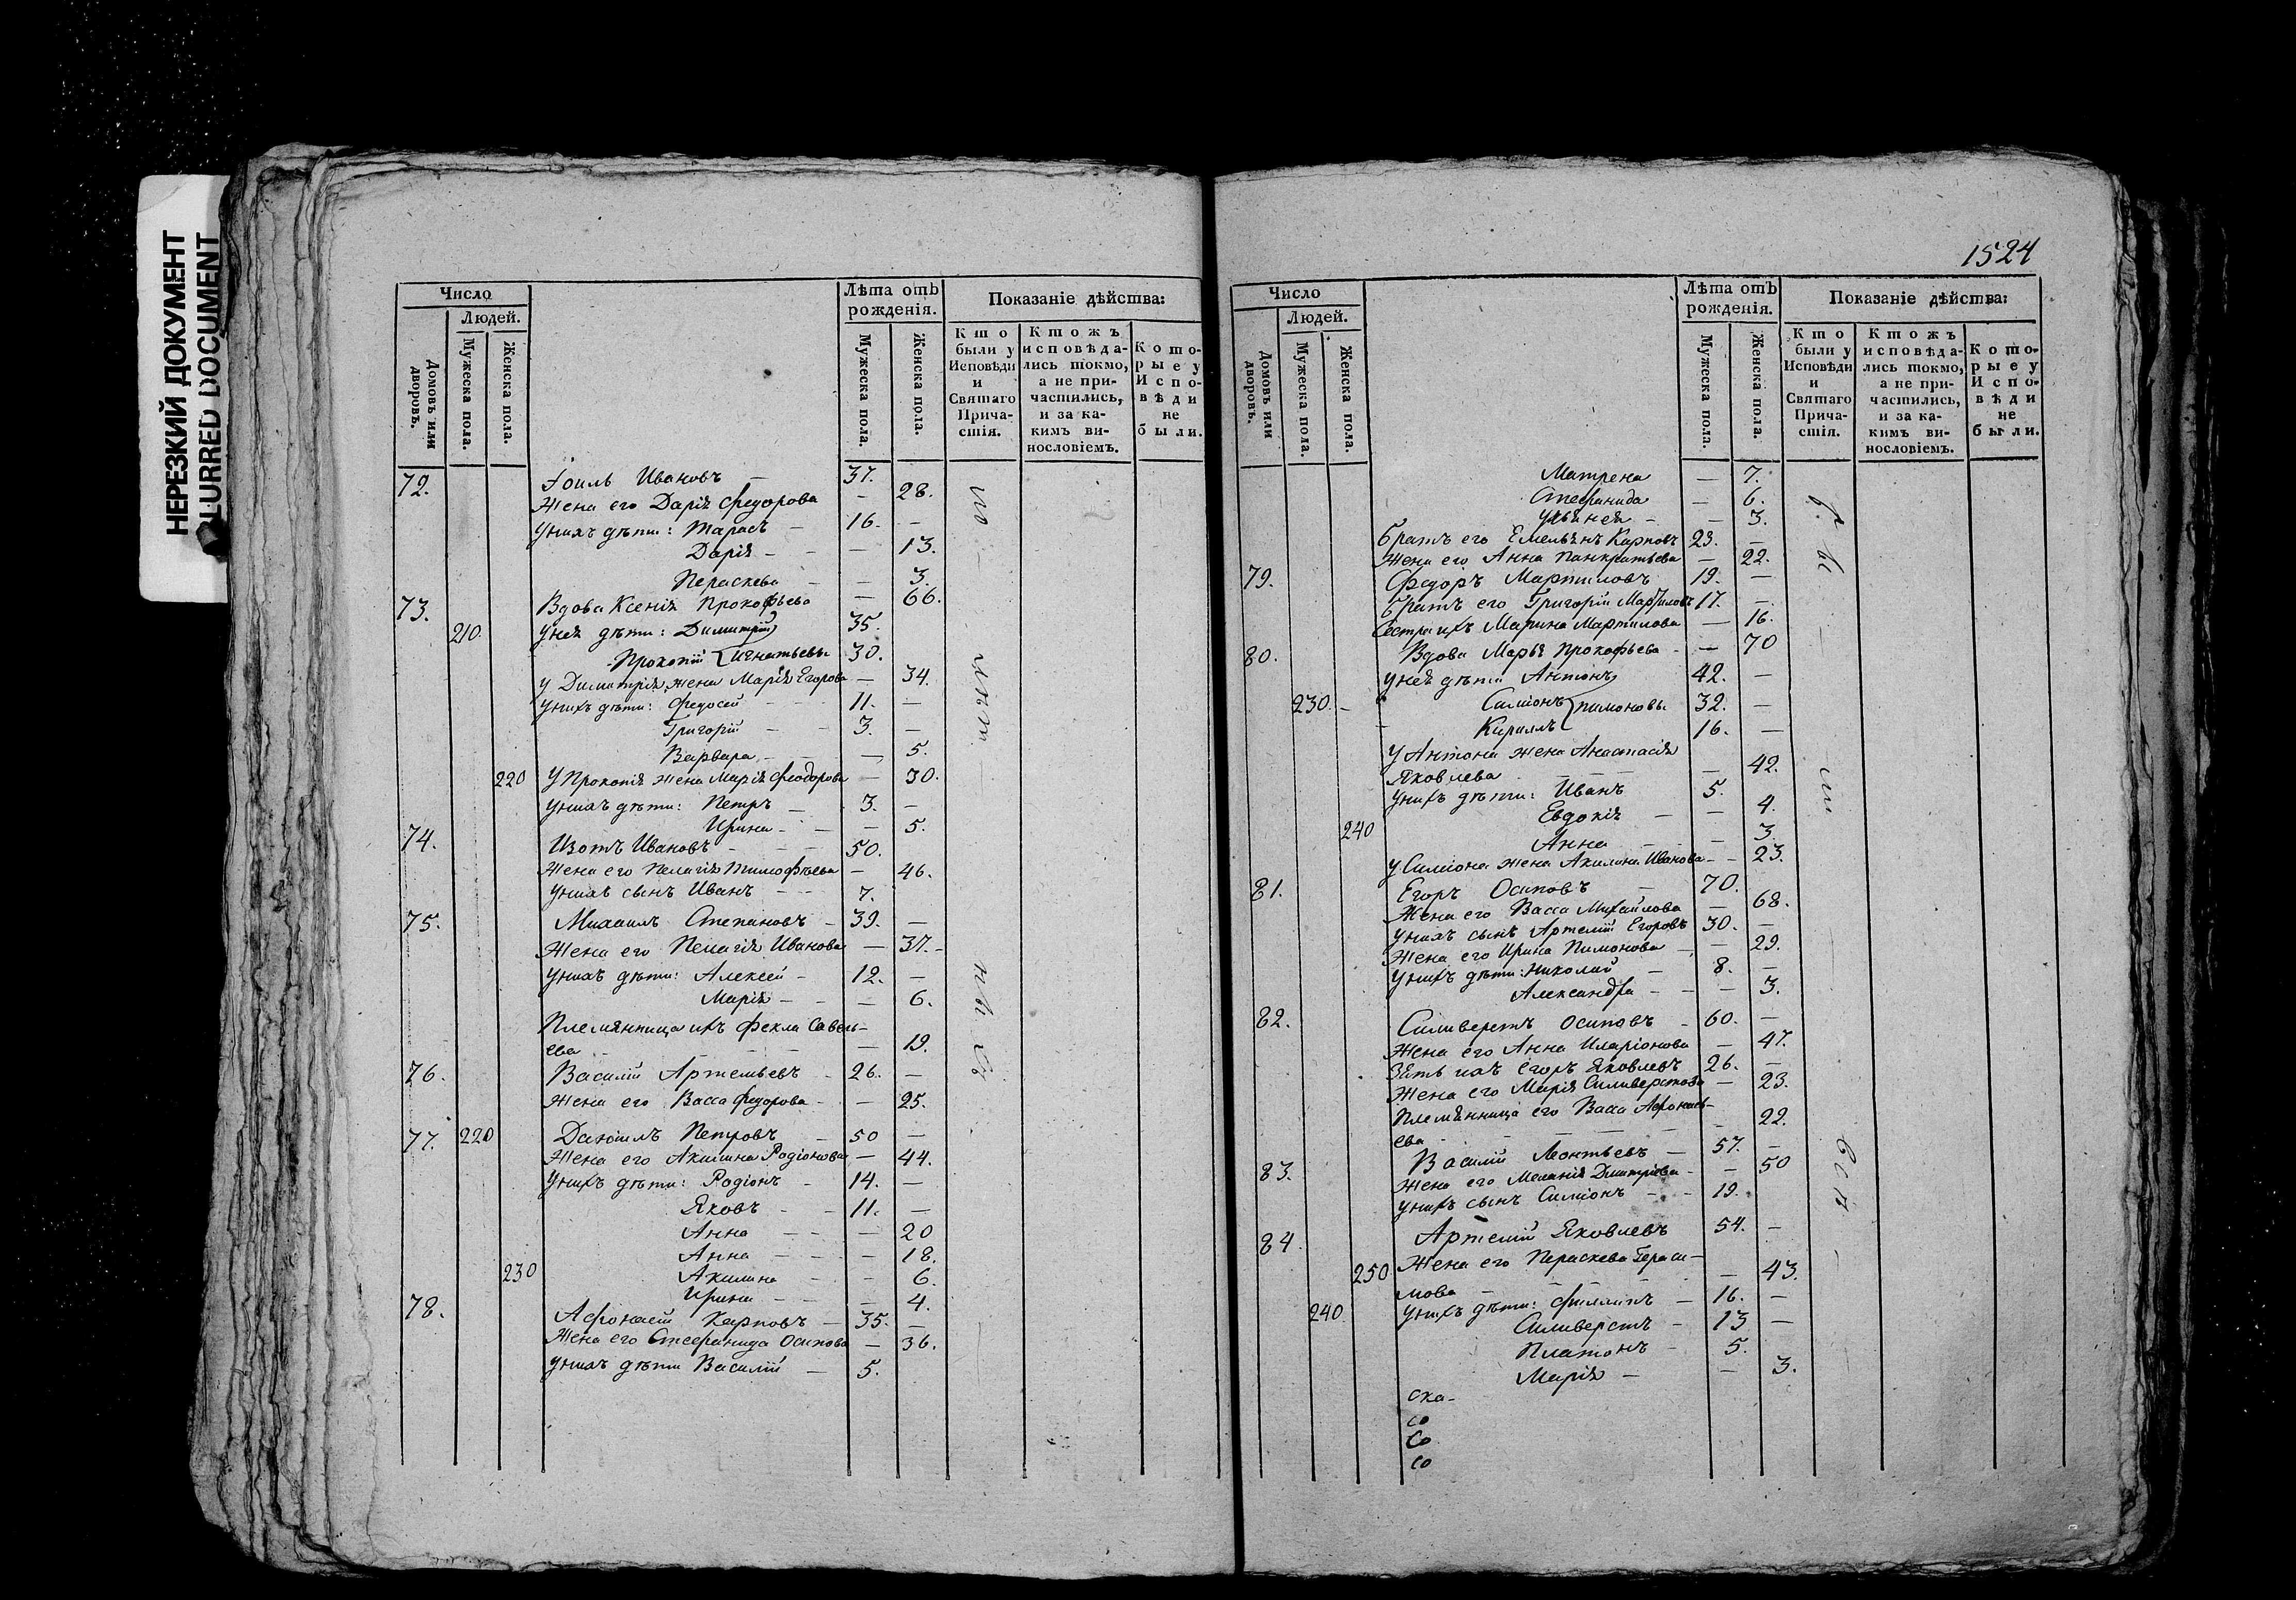 НЕРЕЗКИЙ ДОКУМЕНТ
BLURRED DOCUMENT
Число
Людей.
Домовъ или дворовъ.
Мужеска пола.
Женска пола.
Лѣта отъ рожденія.
Мужеска пола.
Женска пола.
Показаніе дѣйства:
Кто были у Исповѣди и Святаго Причастія.
Ктожъ исповѣдались токмо, а не причастились, и за какимъ винословіемъ.
Которые у Исповѣди не были.
72. Іоиль Ивановъ — 37.
Жена его Дарія Федорова — 28.
Унихъ дѣти: Тарасъ — 16. —
Дарія — — 13.
Пераскева — — 3.
73. Вдова Ксенія Прокофьева — 66.
210. Унея дѣти: Димитрій 35.
Прокопій Игнатьевы 30.
У Димитрія жена Марія Егорова — 34.
Унихъ дѣти: Федосей — 11. —
Григорій — 3. —
Варвара — — 5.
220 У Прокопія жена Марія Феодорова — 30.
Унихъ дѣти: Петръ — 3. —
Ирина — — 5.
74. Изотъ Ивановъ — 50.
Жена его Пелагія Тимофѣева — 46.
Унихъ сынъ Иванъ — 7.
75. Михаилъ Степановъ — 39. —
Жена его Пелагія Иванова — 37. —
Унихъ дѣти: Алексей — 12. —
Марія — — 6.
Племянница ихъ Фекла Савель-
ева — — 19.
76. Василій Артемьевъ — 26. —
Жена его Васса Федорова — — 25.
77. 220 Даніилъ Петровъ — 50 —
Жена его Акилина Родіонова — 44.
Унихъ дѣти: Родіонъ — 14. —
Яковъ — 11. —
Анна — — 20
Анна — — 18.
230 Акилина — — 6.
Ирина — — 4.
78. Афонасій Карповъ — 35. —
Жена его Стефанида Осипова — 36.
Унихъ дѣти Василій — 5.
1524
Число
Людей.
Домовъ или дворовъ.
Мужеска пола.
Женска пола.
Лѣта отъ рожденія.
Мужеска пола.
Женска пола.
Показаніе дѣйства:
Кто были у Исповѣди и Святаго Причастія.
Ктожъ исповѣдались токмо, а не причастились, и за какимъ винословіемъ.
Которые у Исповѣди не были.
Матрена — 7.
Стефанида — 6.
— 3.
Братъ его Емельянъ Карповъ 23. —
Жена его Анна Панкратьева — 22.
79. Федоръ Мартиновъ 19. —
Братъ его Григорій 17. —
Сестра ихъ Марина — 16.
80. Вдова Марья Прокофьева — — 70
Унея дѣти Антонъ 42. —
230. — Симіонъ Пимоновы 32. —
Кириллъ 16. —
У Антона жена Анастасія
Яковлева — — 42.
Унихъ дѣти: Иванъ 5.
Евдокія — — 4.
240 Анна — — 3.
У Симіона жена Акилина Иванова — — 23.
81. Егоръ Осиповъ — 70.
Жена его Васса Михайлова — 68.
Унихъ сынъ Артемій Егоровъ 30. —
Жена его Ирина Пимонова — — 29.
Унихъ дѣти: Николай — 8. —
Александра — — 3.
82. Силиверстъ Осиповъ — 60. —
Жена его Анна Иларіонова — 47.
Зять ихъ Егоръ Яковлевъ 26. —
Жена его Марія Силиверстова — 23.
Племянница его Васса Афонась-
ева — — 22.
83. Василій Леонтьевъ — 57. —
Жена его Меланія Дмитріева — — 50
Унихъ сынъ Симіонъ — — 19.
84. Артемій Яковлевъ 54. —
250 Жена его Пераскева Гераси-
мова — — 43.
240 Унихъ дѣти: Филиппъ — 16. —
Силиверстъ — 13 —
Платонъ — 5.
Марія — — 3.
ска-
со
со
со